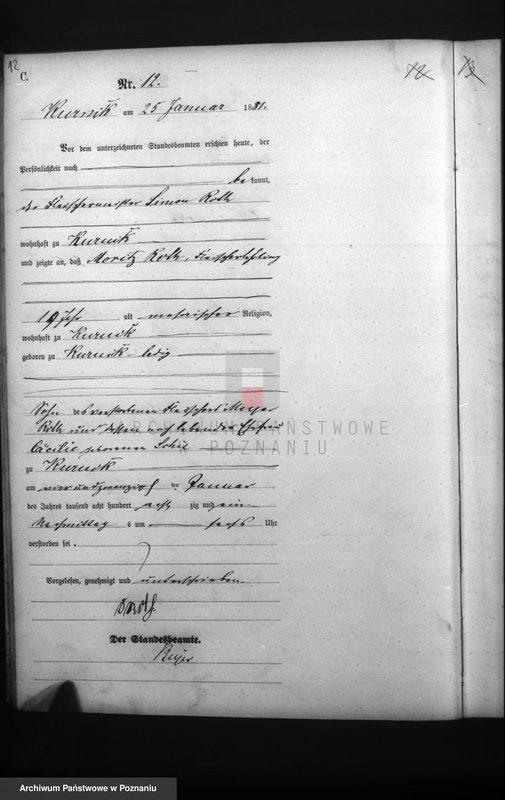 12
C.
Nr. 12.
Kurnik am 25 Januar 1881.
Vor dem unterzeichneten Standesbeamten erschien heute, der
Persönlichkeit nach
bekannt,
der Fleischermeister Simon Roth
wohnhaft zu Kurnik
und zeigte an, daß Moritz Roth, Fleischerlehrling
19 Jahr alt mosaischer Religion,
wohnhaft zu Kurnik
geboren zu Kurnik ledig
Sohn des verstorbenen Fleischers Meyer
Roth und dessen noch lebenden Ehefrau
Cäcilie geborenen
zu Kurnik
am vierundzwanzigsten Januar
des Jahres tausend acht hundert achtzig und ein
Nachmittags um sechs Uhr
verstorben sei.
Vorgelesen, genehmigt und unterschrieben.
Der Standesbeamte.
12
13
ARCHIWUM PAŃSTWOWE
W POZNANIU
Archiwum Państwowe w Poznaniu